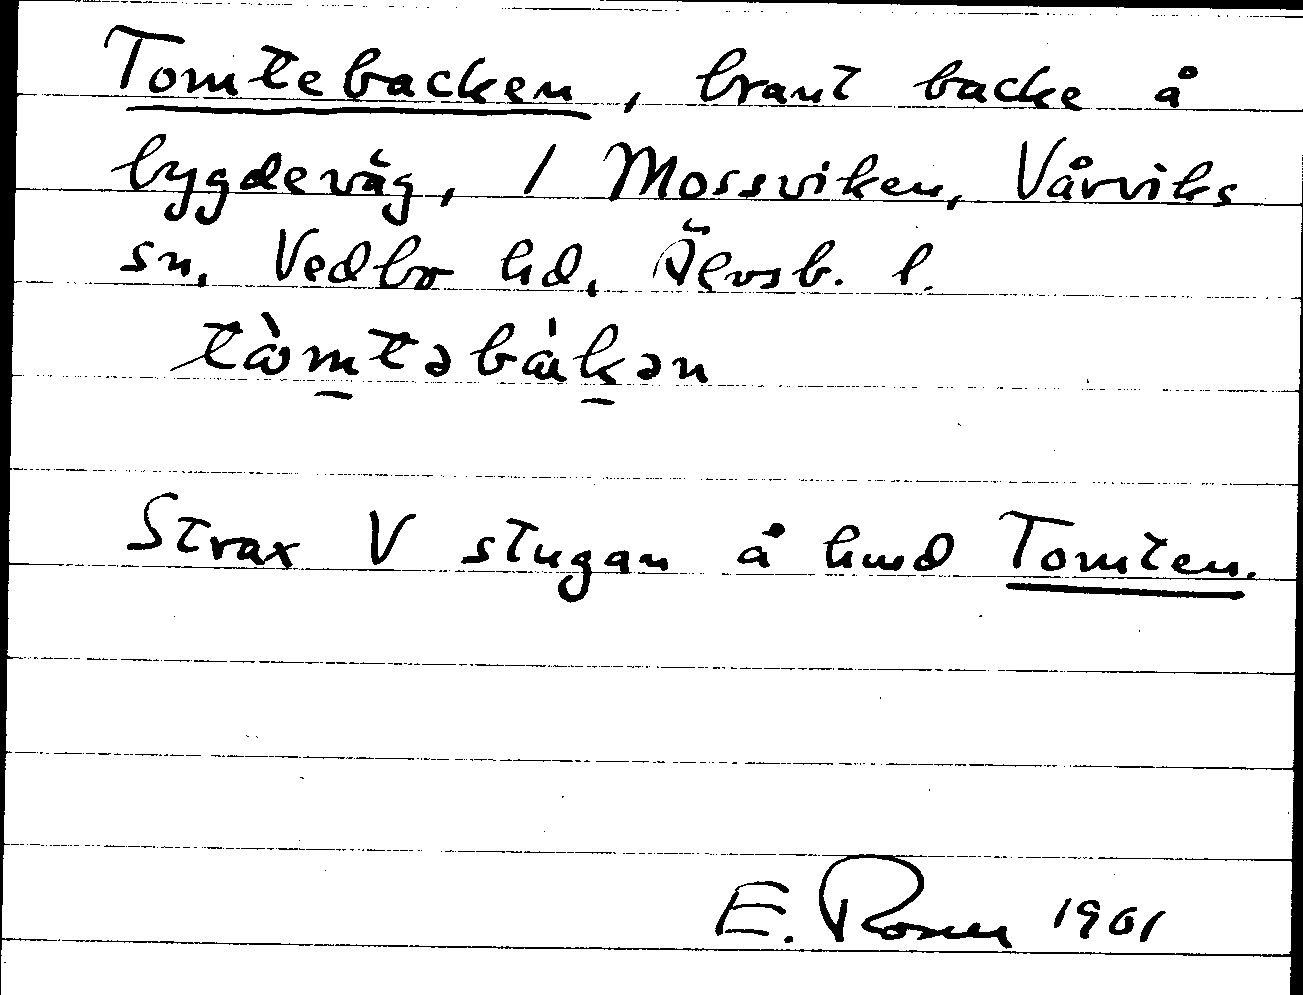 Tomtebacken, brant backe å
bygdeväg, / Mossviken, Vårviks
sn, Vedbo hd, Älvsb. l.
tòmtəbàkən
Strax V stugan å hmd Tomten.
E. Rosell 1961